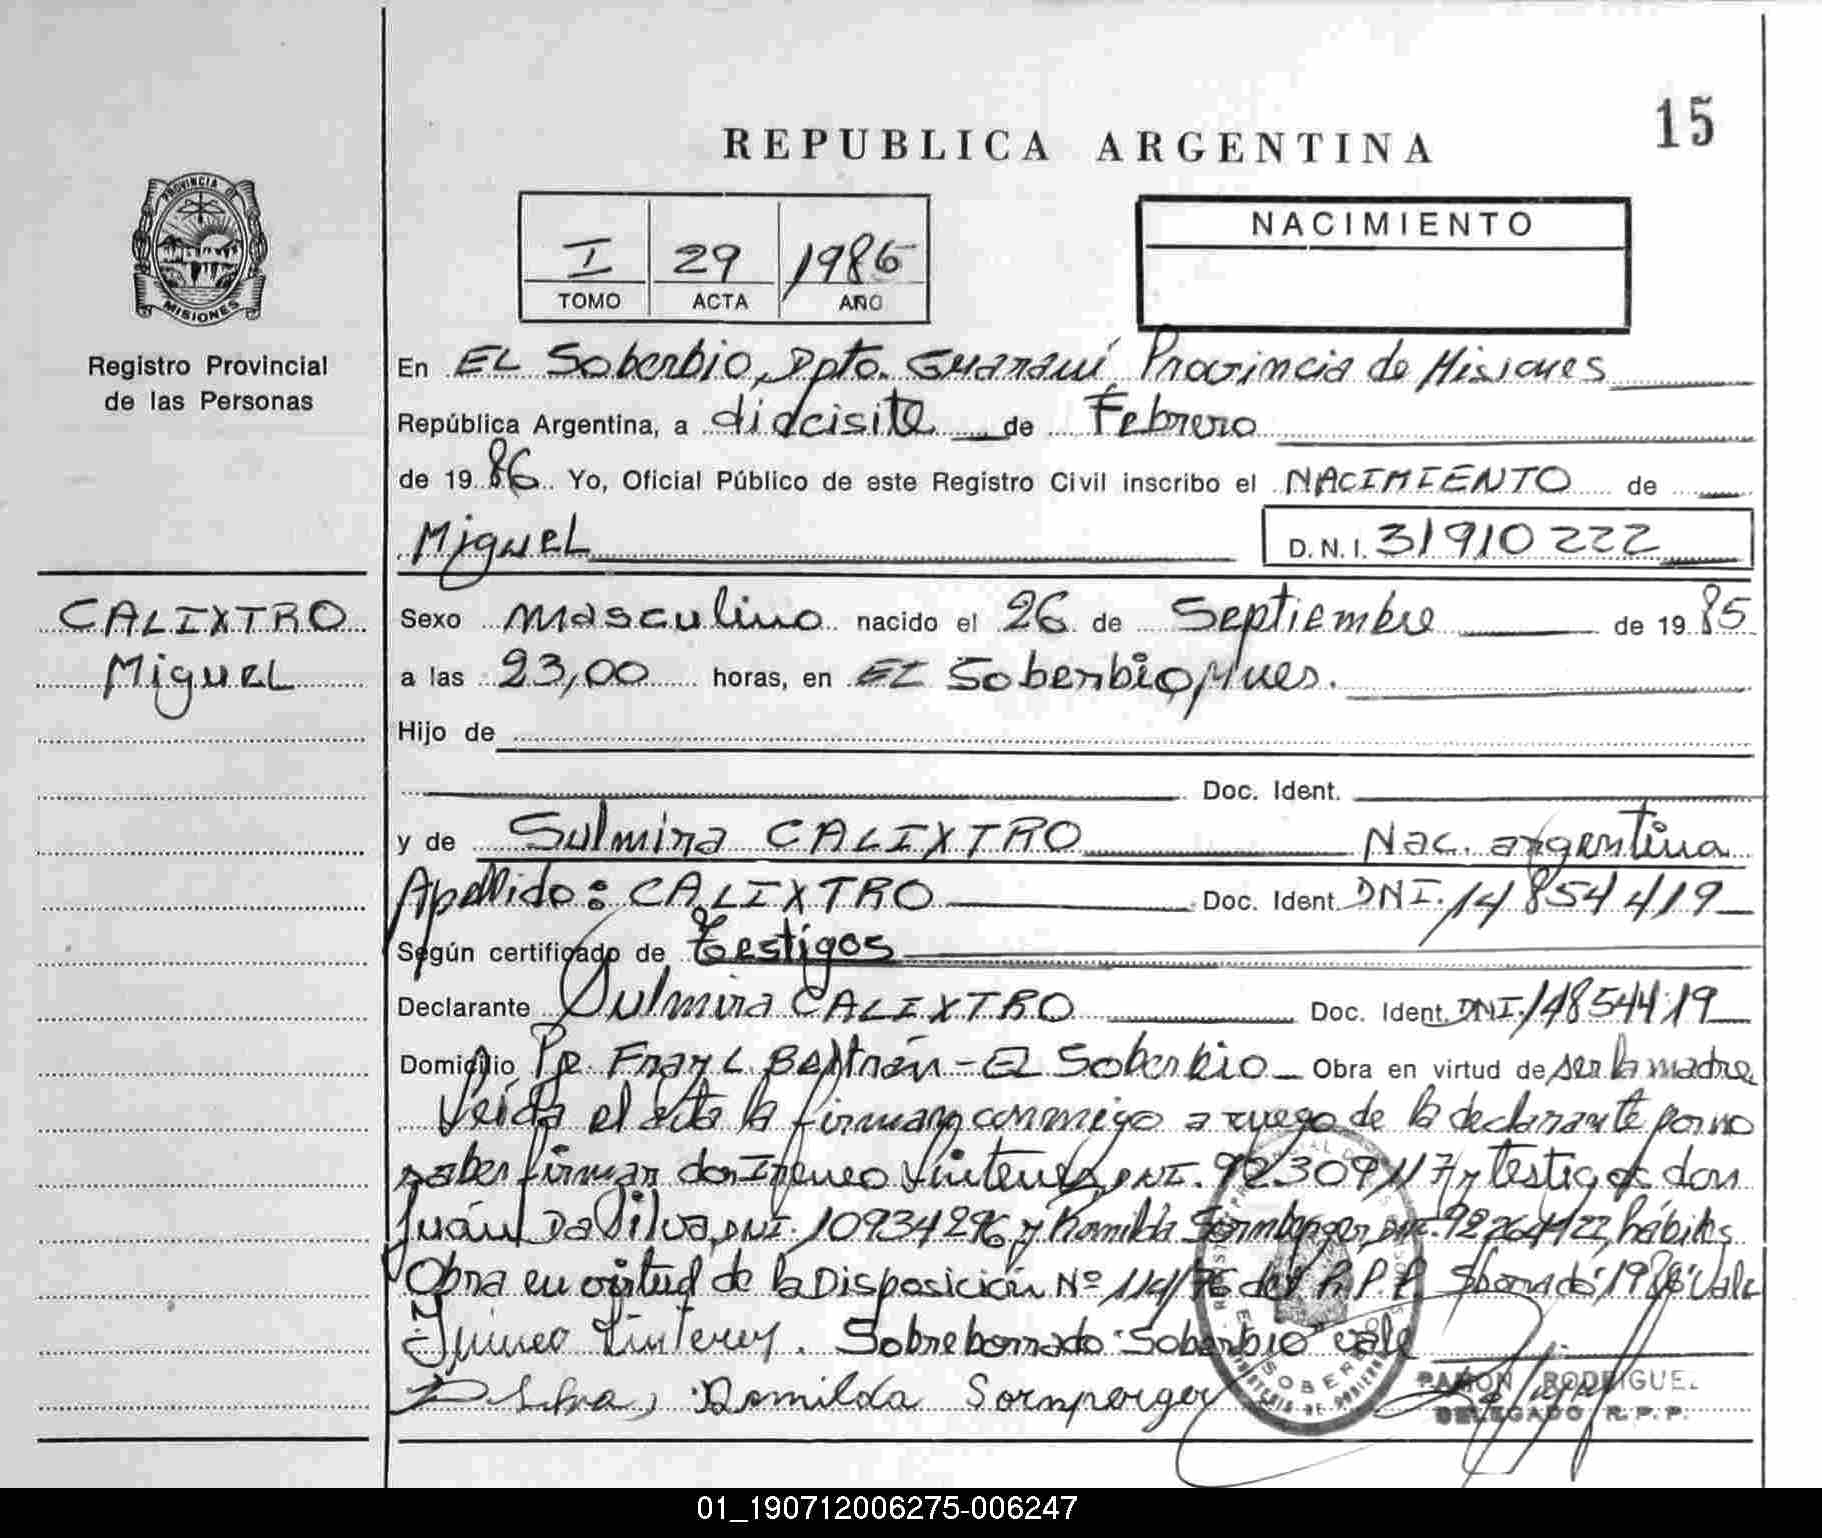 15
REPUBLICA ARGENTINA
PROVINCIA DE
MISIONES
Registro Provincial
de las Personas
I 29 1986
TOMO ACTA AÑO
NACIMIENTO
En EL Soberbio, Dpto. Guaraní, Provincia de Misiones
República Argentina, a diecisite de Febrero
de 1986 Yo, Oficial Público de este Registro Civil inscribo el NACIMIENTO de
Miguel D.N.I. 31910222
CALIXTRO
Miguel
Sexo masculino nacido el 26 de Septiembre de 1985
a las 23,00 horas, en EL Soberbio, Mnes.
Hijo de
Doc. Ident.
y de Sulmira CALIXTRO Nac. argentina
Apellido: CALIXTRO Doc. Ident. DNI. 14854419
Según certificado de testigos
Declarante Sulmira CALIXTRO Doc. Ident. DNI. 14854419
Domicilio Pje. Fray L. Beltrán - EL Soberbio Obra en virtud de ser la madre
Leida el acta la firman conmigo a ruego de la declarante por no
saber firmar don Ireneo DNI. 92309117 y testigos don
Juán Da Silva, DNI. 10934296 y Romilda DNI. 92264122, hábiles
Obra en virtud de la Disposición Nº 114/76 del R.P.P. 1986 Vale
Sobreborrado "Soberbio" vale
Romilda Sornperger
EL SOBERBIO
RAMON RODRIGUEZ
DELEGADO R.P.P.
01_190712006275-006247